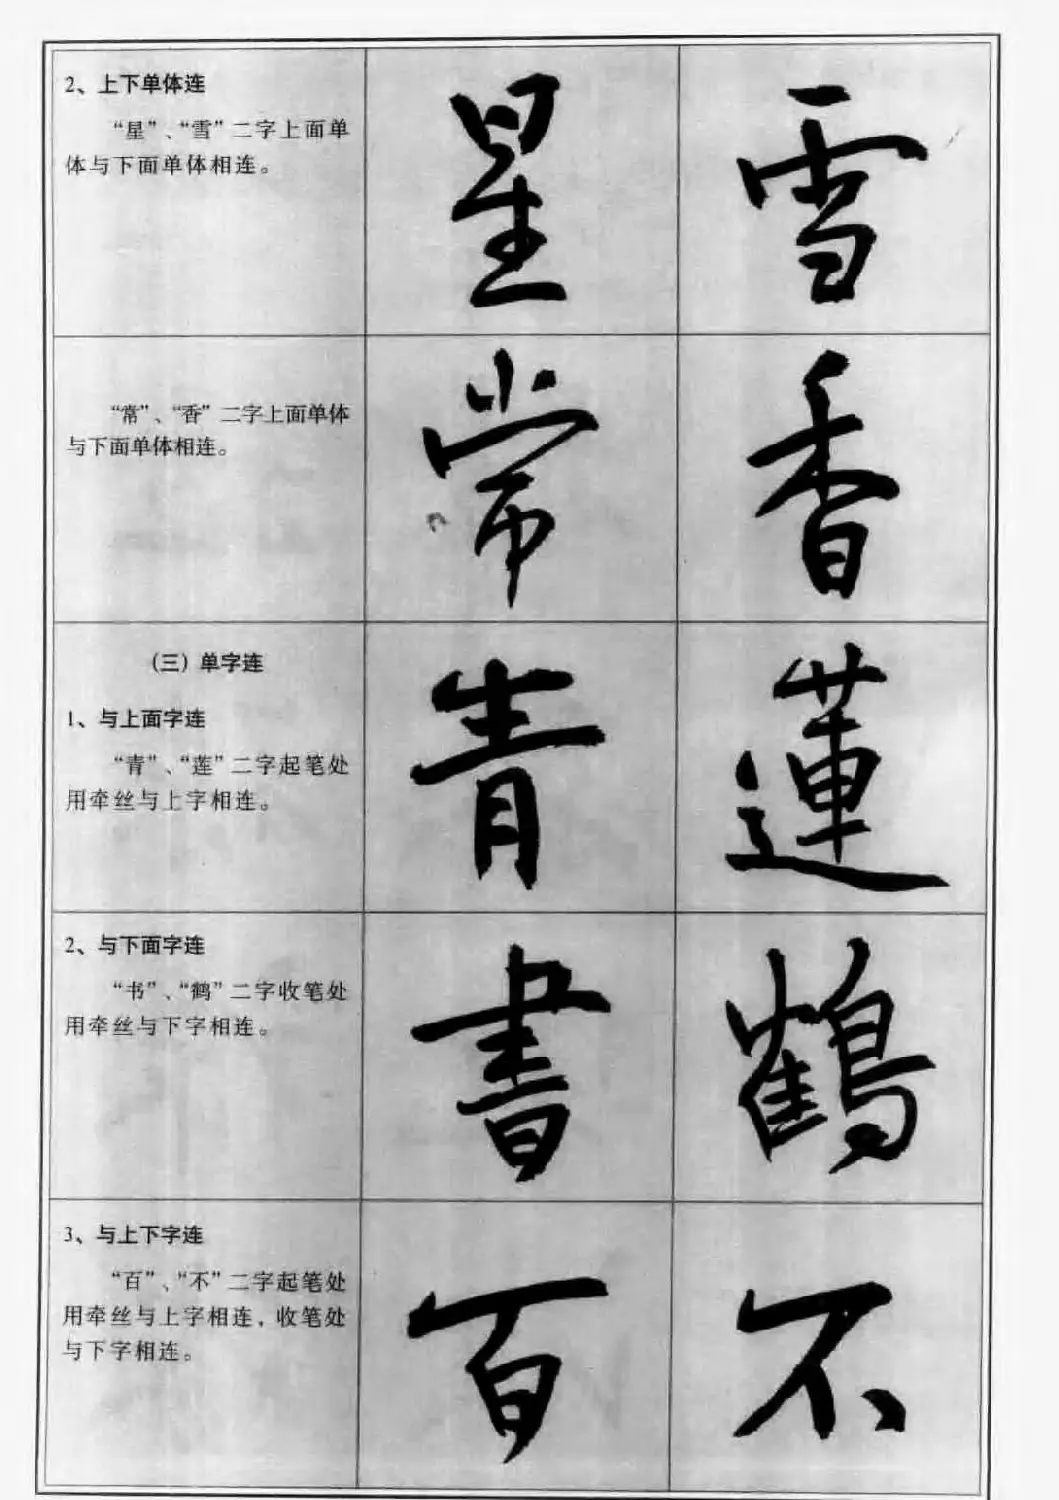 2、上下单体连
“星”、“雪”二字上面单
体与下面单体相连。
星 雪
“常”、“香”二字上面单体
与下面单体相连。
常 香
（三）单字连
1、与上面字连
“青”、“莲”二字起笔处
用牵丝与上字相连。
青 蓮
2、与下面字连
“书”、“鹤”二字收笔处
用牵丝与下字相连。
書 鶴
3、与上下字连
“百”、“不”二字起笔处
用牵丝与上字相连，收笔处
与下字相连。
百 不